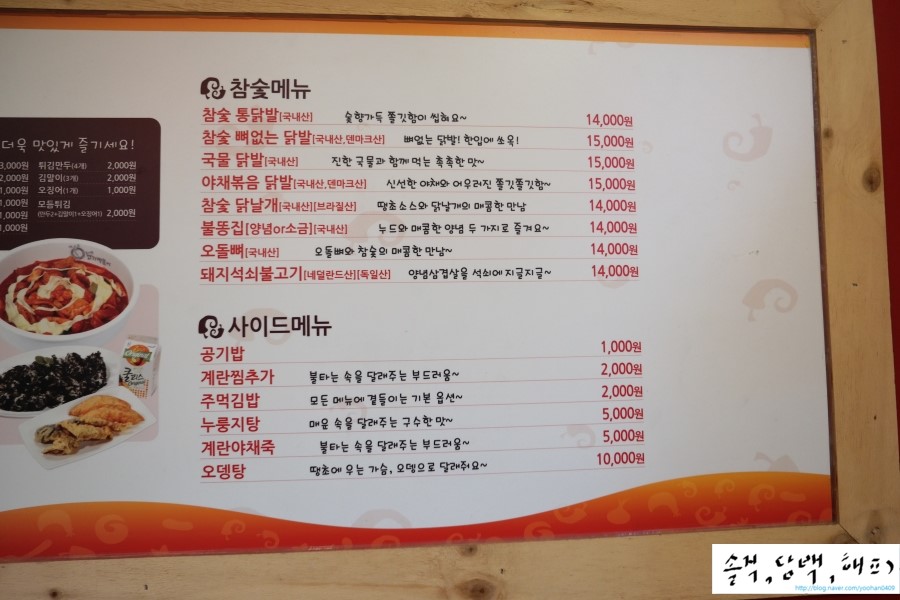 더욱 맛있게 즐기세요!
3,000원 튀김만두(4개) 2,000원
2,000원 김말이(3개) 2,000원
1,000원 오징어(1개) 1,000원
1,000원 모듬튀김
1,000원 (만두2+김말이1+오징어1) 2,000원
참숯메뉴
참숯 통닭발[국내산] 숯향가득 쫄깃함이 씹혀요~ 14,000원
참숯 뼈없는 닭발[국내산,덴마크산] 뼈없는 닭발! 한입에 쏘옥! 15,000원
국물 닭발[국내산] 진한 국물과 함께 먹는 촉촉한 맛~ 15,000원
야채볶음 닭발[국내산,덴마크산] 신선한 야채와 어우러진 쫄깃쫄깃함~ 15,000원
참숯 닭날개[국내산][브라질산] 땡초소스와 닭날개의 매콤한 만남 14,000원
불똥집[양념or소금][국내산] 누드와 매콤한 양념 두 가지로 즐겨요~ 14,000원
오돌뼈[국내산] 오돌뼈와 참숯의 매콤한 만남~ 14,000원
돼지석쇠불고기[네덜란드산][독일산] 양념삼겹살을 석쇠에 지글지글~ 14,000원
사이드메뉴
공기밥 1,000원
계란찜추가 불타는 속을 달래주는 부드러움~ 2,000원
주먹김밥 모든 메뉴에 곁들이는 기본 옵션~ 2,000원
누룽지탕 매운 속을 달래주는 구수한 맛~ 5,000원
계란야채죽 불타는 속을 달래주는 부드러움~ 5,000원
오뎅탕 땡초에 우는 가슴, 오뎅으로 달래줘요~ 10,000원
쿨피스
솔직, 담백, 해피
http://blog.naver.com/yoohan0408